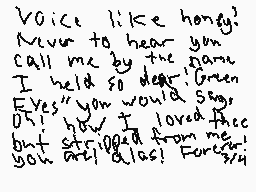 Voice like honey?
Never to hear you
call me by the name
I held so dear! "Green
Eyes" you would say,
Oh! how I loved thee
but stripped from me
you are! alas! Forever!
3/4